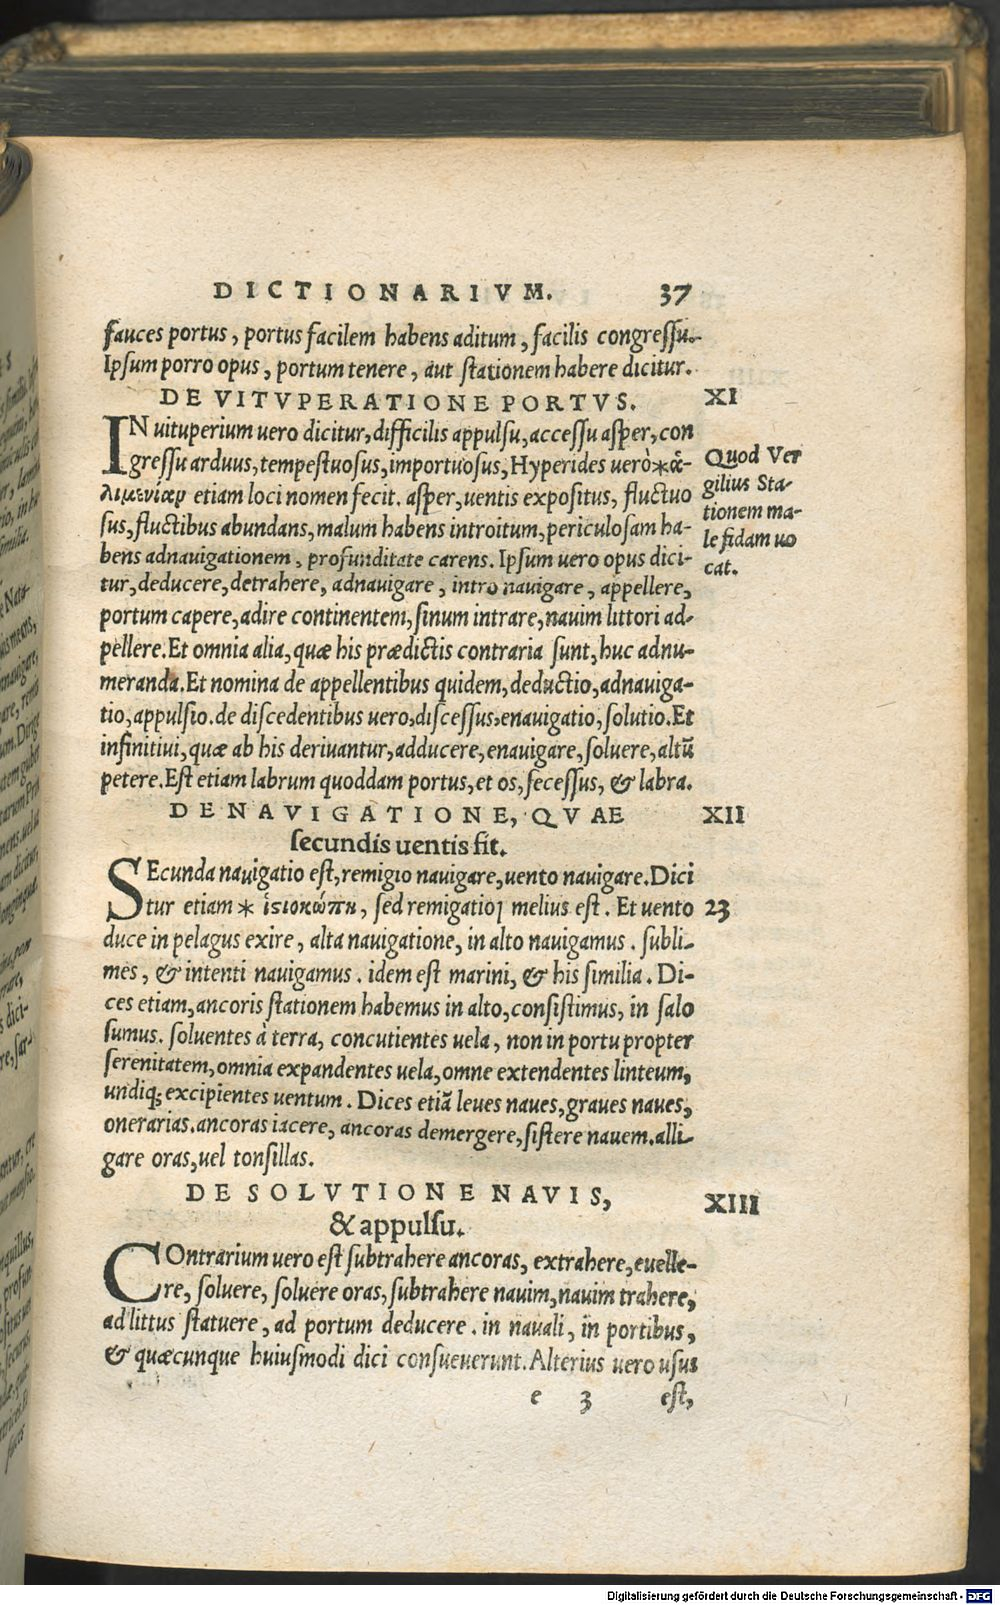 DICTIONARIVM. 37
fauces portus, portus facilem habens aditum, facilis congressu.
Ipsum porro opus, portum tenere, aut stationem habere dicitur.
DE VITVPERATIONE PORTVS. XI
IN uituperium uero dicitur, difficilis appulsu, accessu asper, con
gressu arduus, tempestuosus, importuosus, Hyperides uerò * ἀ-
λιμενίαν etiam loci nomen fecit. asper, uentis expositus, fluctuo
sus, fluctibus abundans, malum habens introitum, periculosam ha-
bens adnauigationem, profunditate carens. Ipsum uero opus dici-
tur, deducere, detrahere, adnauigare, intro nauigare, appellere,
portum capere, adire continentem, sinum intrare, nauim littori ad-
pellere. Et omnia alia, quæ his prædictis contraria sunt, huc adnu-
meranda. Et nomina de appellentibus quidem, deductio, adnauiga-
tio, appulsio. de discedentibus uero, discessus, enauigatio, solutio. Et
infinitiui, quæ ab his deriuantur, adducere, enauigare, soluere, altũ
petere. Est etiam labrum quoddam portus, et os, secessus, & labra.
Quod Ver
gilius Sta-
tionem ma-
le fidam uo
cat.
DE NAVIGATIONE, QVAE XII
secundis uentis fit.
SEcunda nauigatio est, remigio nauigare, uento nauigare. Dici
tur etiam * ἱστιοκώπη, sed remigatio melius est. Et uento 23
duce in pelagus exire, alta nauigatione, in alto nauigamus. subli-
mes, & intenti nauigamus. idem est marini, & his similia. Di-
ces etiam, ancoris stationem habemus in alto, consistimus, in salo
sumus. soluentes à terra, concutientes uela, non in portu propter
serenitatem, omnia expandentes uela, omne extendentes linteum,
undiq; excipientes uentum. Dices etiã leues naues, graues naues,
onerarias. ancoras iacere, ancoras demergere, sistere nauem. alli-
gare oras, uel tonsillas.
DE SOLVTIONE NAVIS, XIII
& appulsu.
COntrarium uero est subtrahere ancoras, extrahere, euelle-
re, soluere, soluere oras, subtrahere nauim, nauim trahere,
ad littus statuere, ad portum deducere. in nauali, in portibus,
& quæcunque huiusmodi dici consueuerunt. Alterius uero usus
e 3 est,
Digitalisierung gefördert durch die Deutsche Forschungsgemeinschaft - DFG